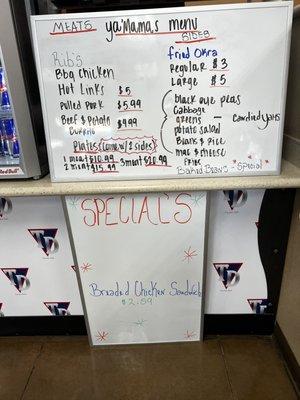 ya'Mama's menu
MEATS
SIDES
Rib's
BBq Chicken
Hot Links $5
Pulled Pork $5.99
Beef & Potato $4.99
Burrito
Plates (Come w/ 2 sides)
1 meat $10.99 3 meat $20.99
2 meat $15.99
fried Okra
Regular $3
Large $5
black eye peas
Cabbage
greens - candied yams
potato salad
Beans & Rice
mac & cheese
Fries
Baked Beans - Special
SPECIAL'S
Breaded Chicken Sandwich
$2.59